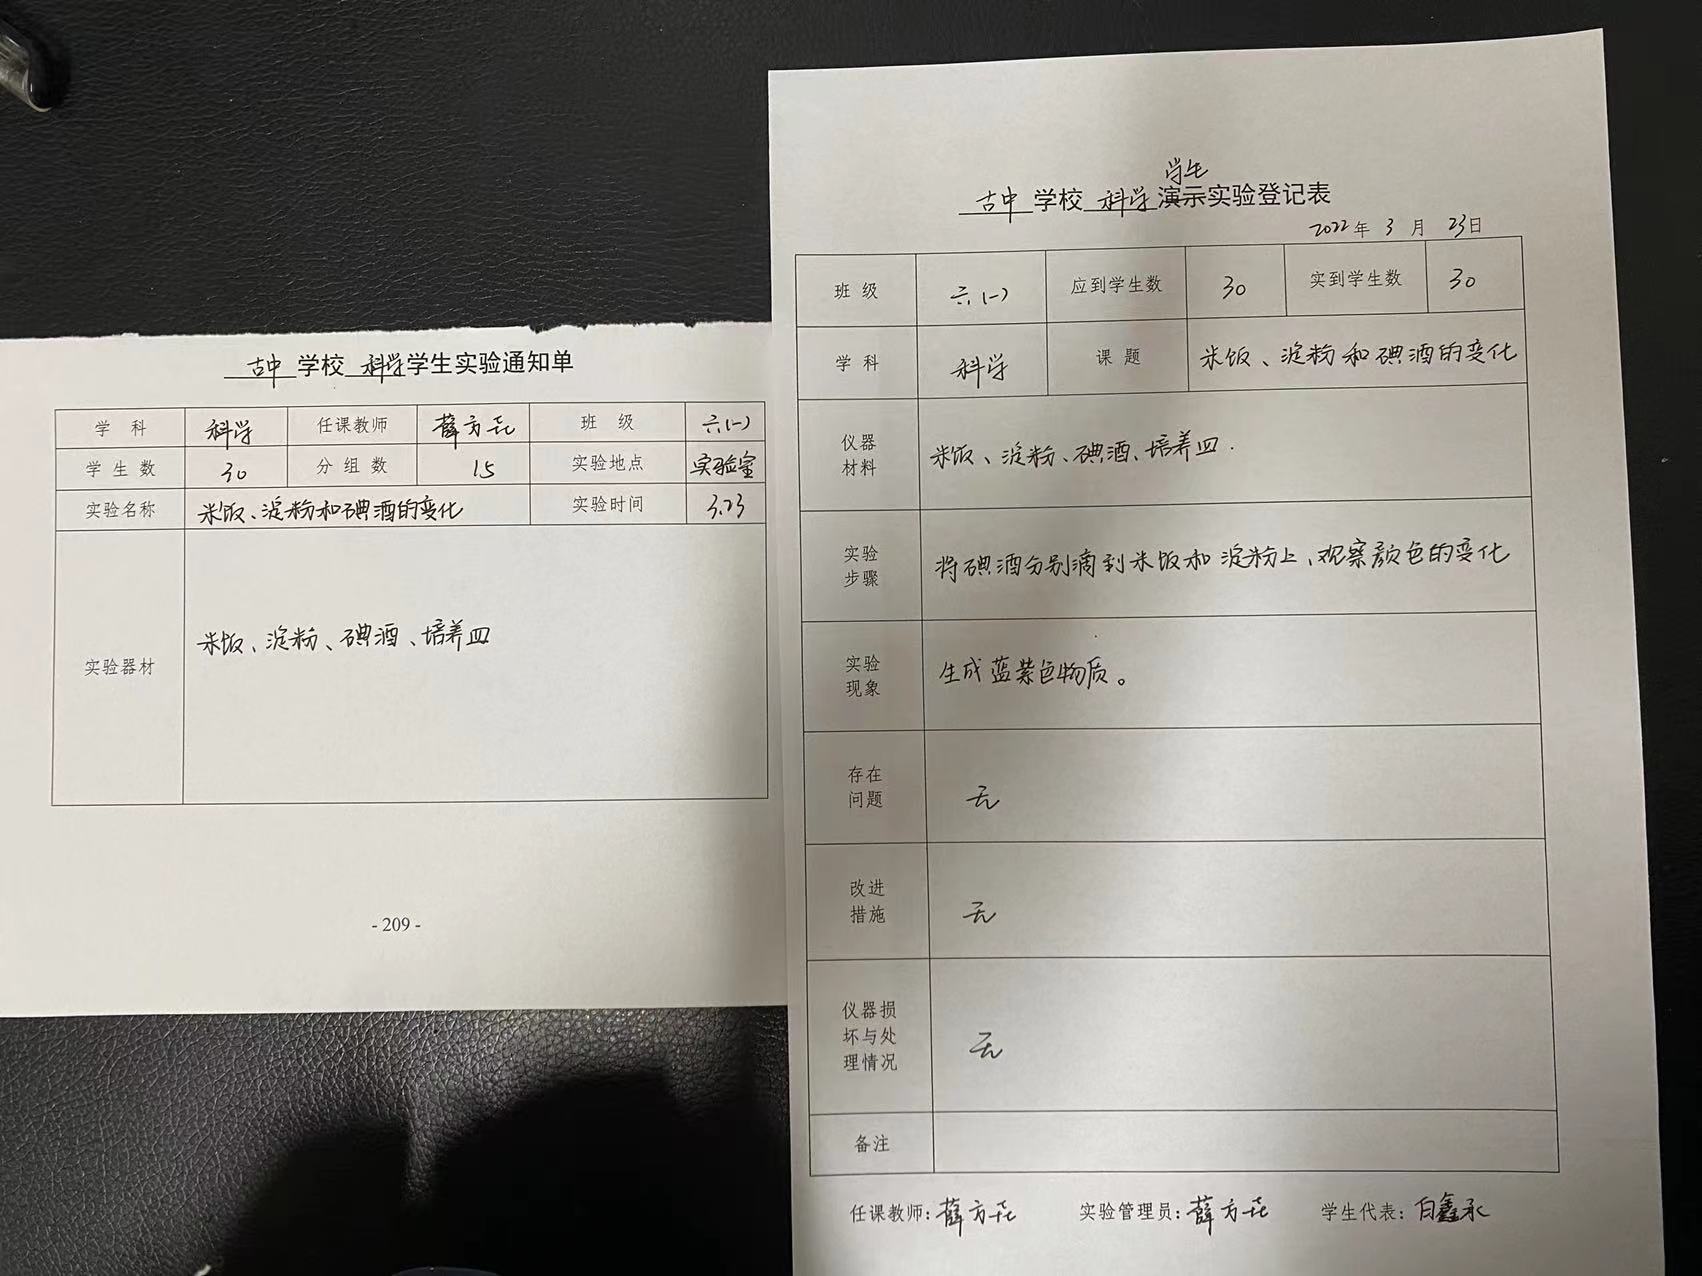 古中 学校 科学 学生实验通知单
学 科 科学 任课教师 薛方 班 级 六(一)
学 生 数 30 分 组 数 15 实验地点 实验室
实验名称 米饭、淀粉和碘酒的变化 实验时间 3.23
实验器材 米饭、淀粉、碘酒、培养皿
- 209 -
学生
古中 学校 科学 演示实验登记表
2022 年 3 月 23 日
班 级 六(一) 应到学生数 30 实到学生数 30
学 科 科学 课 题 米饭、淀粉和碘酒的变化
仪器
材料 米饭、淀粉、碘酒、培养皿.
实验
步骤 将碘酒分别滴到米饭和淀粉上、观察颜色的变化
实验
现象 生成蓝紫色物质。
存在
问题 无
改进
措施 无
仪器损
坏与处
理情况 无
备注
任课教师: 薛方 实验管理员: 薛方 学生代表: 白鑫承